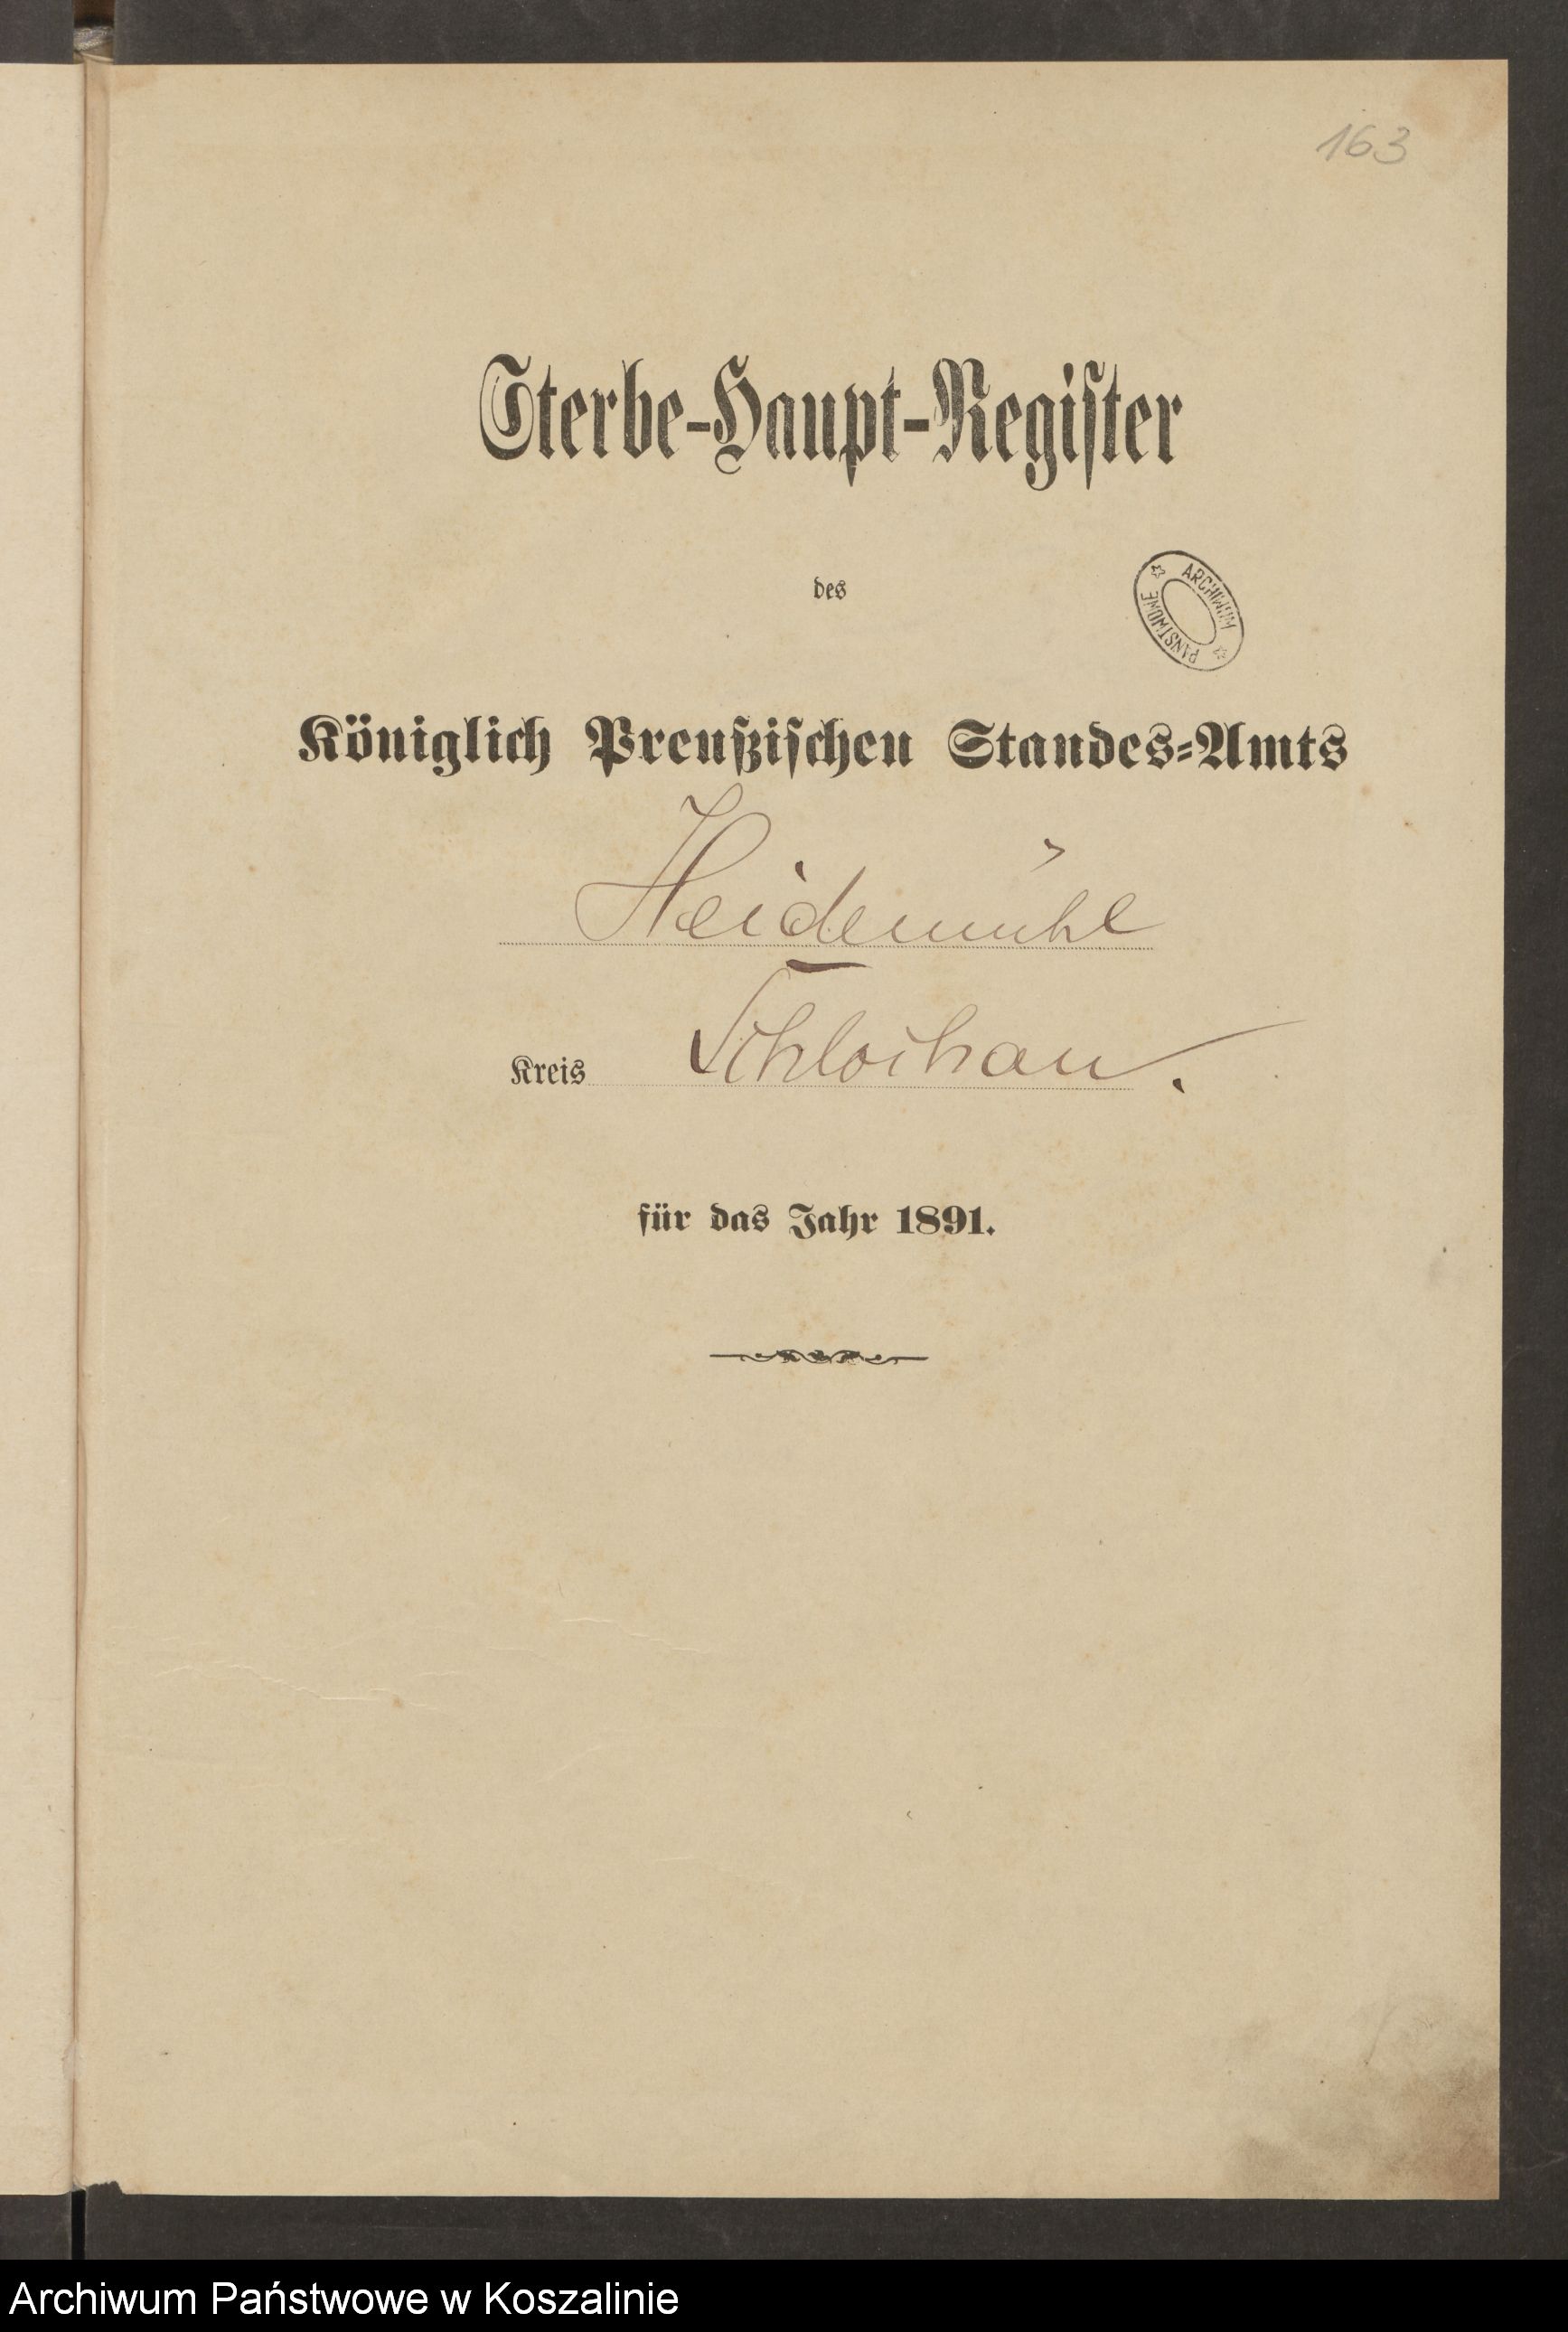 163
Sterbe-Haupt-Register
des
ARCHIWUM
PAŃSTWOWE
Königlich Preußischen Standes-Amts
Heidemühl
Kreis Schlochau.
für das Jahr 1891.
Archiwum Państwowe w Koszalinie